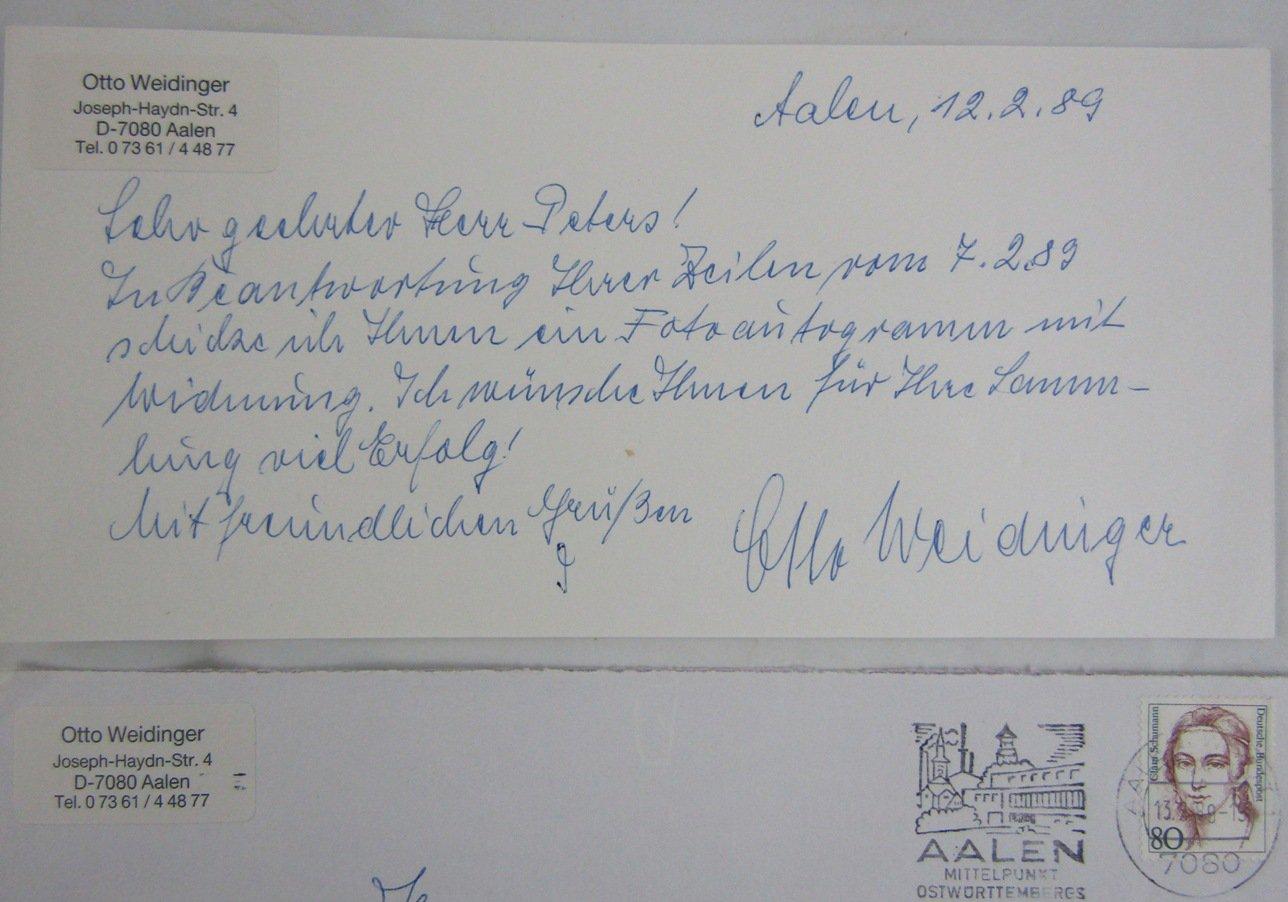 Otto Weidinger
Joseph-Haydn-Str. 4
D-7080 Aalen
Tel. 0 73 61 / 4 48 77
Aalen, 12.2.89
Sehr geehrter Herr Peters!
In Beantwortung Ihrer Zeilen vom 7.2.89
schicke ich Ihnen ein Fotoautogramm mit
Widmung. Ich wünsche Ihnen für Ihre Samm-
lung viel Erfolg!
Mit freundlichen Grüßen
Otto Weidinger
Otto Weidinger
Joseph-Haydn-Str. 4
D-7080 Aalen
Tel. 0 73 61 / 4 48 77
AALEN
MITTELPUNKT
OSTWÜRTTEMBERGS
Clara Schumann
Deutsche Bundespost
80
7080